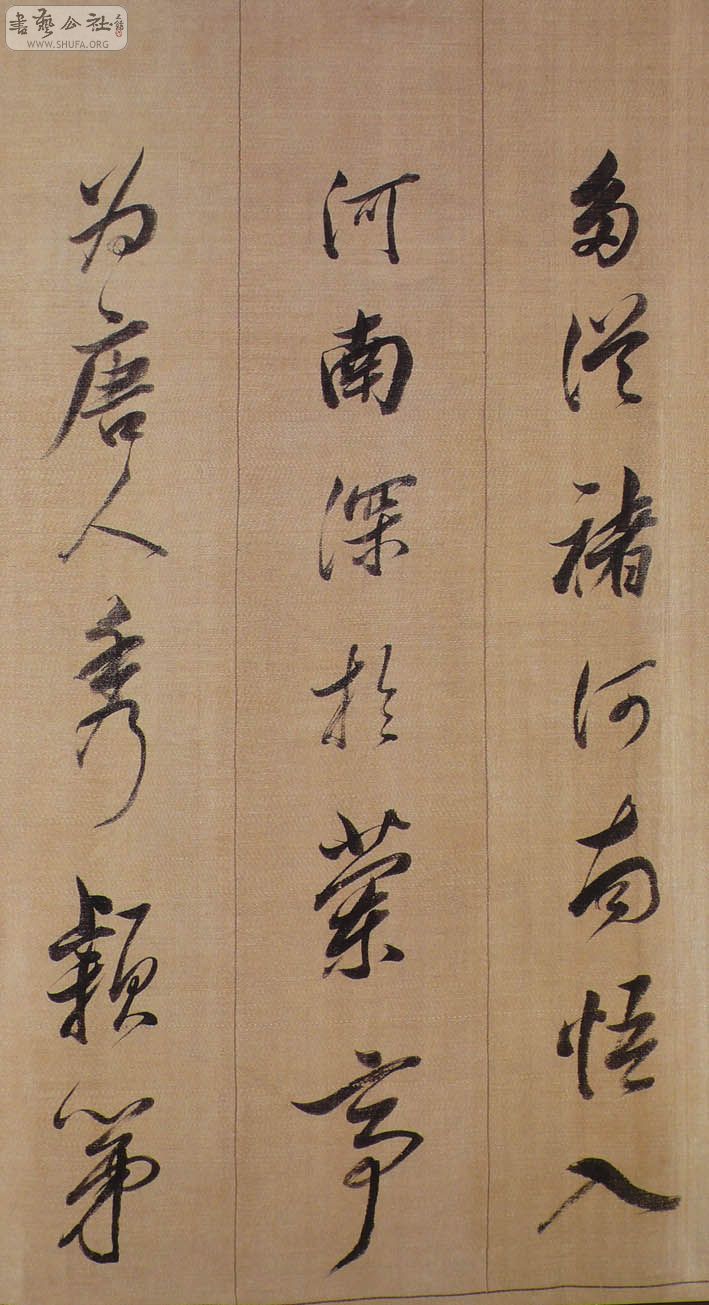 多從褚河南悟入
河南深於蘭亭
为唐人秀穎第
書藝公社
WWW.SHUFA.ORG